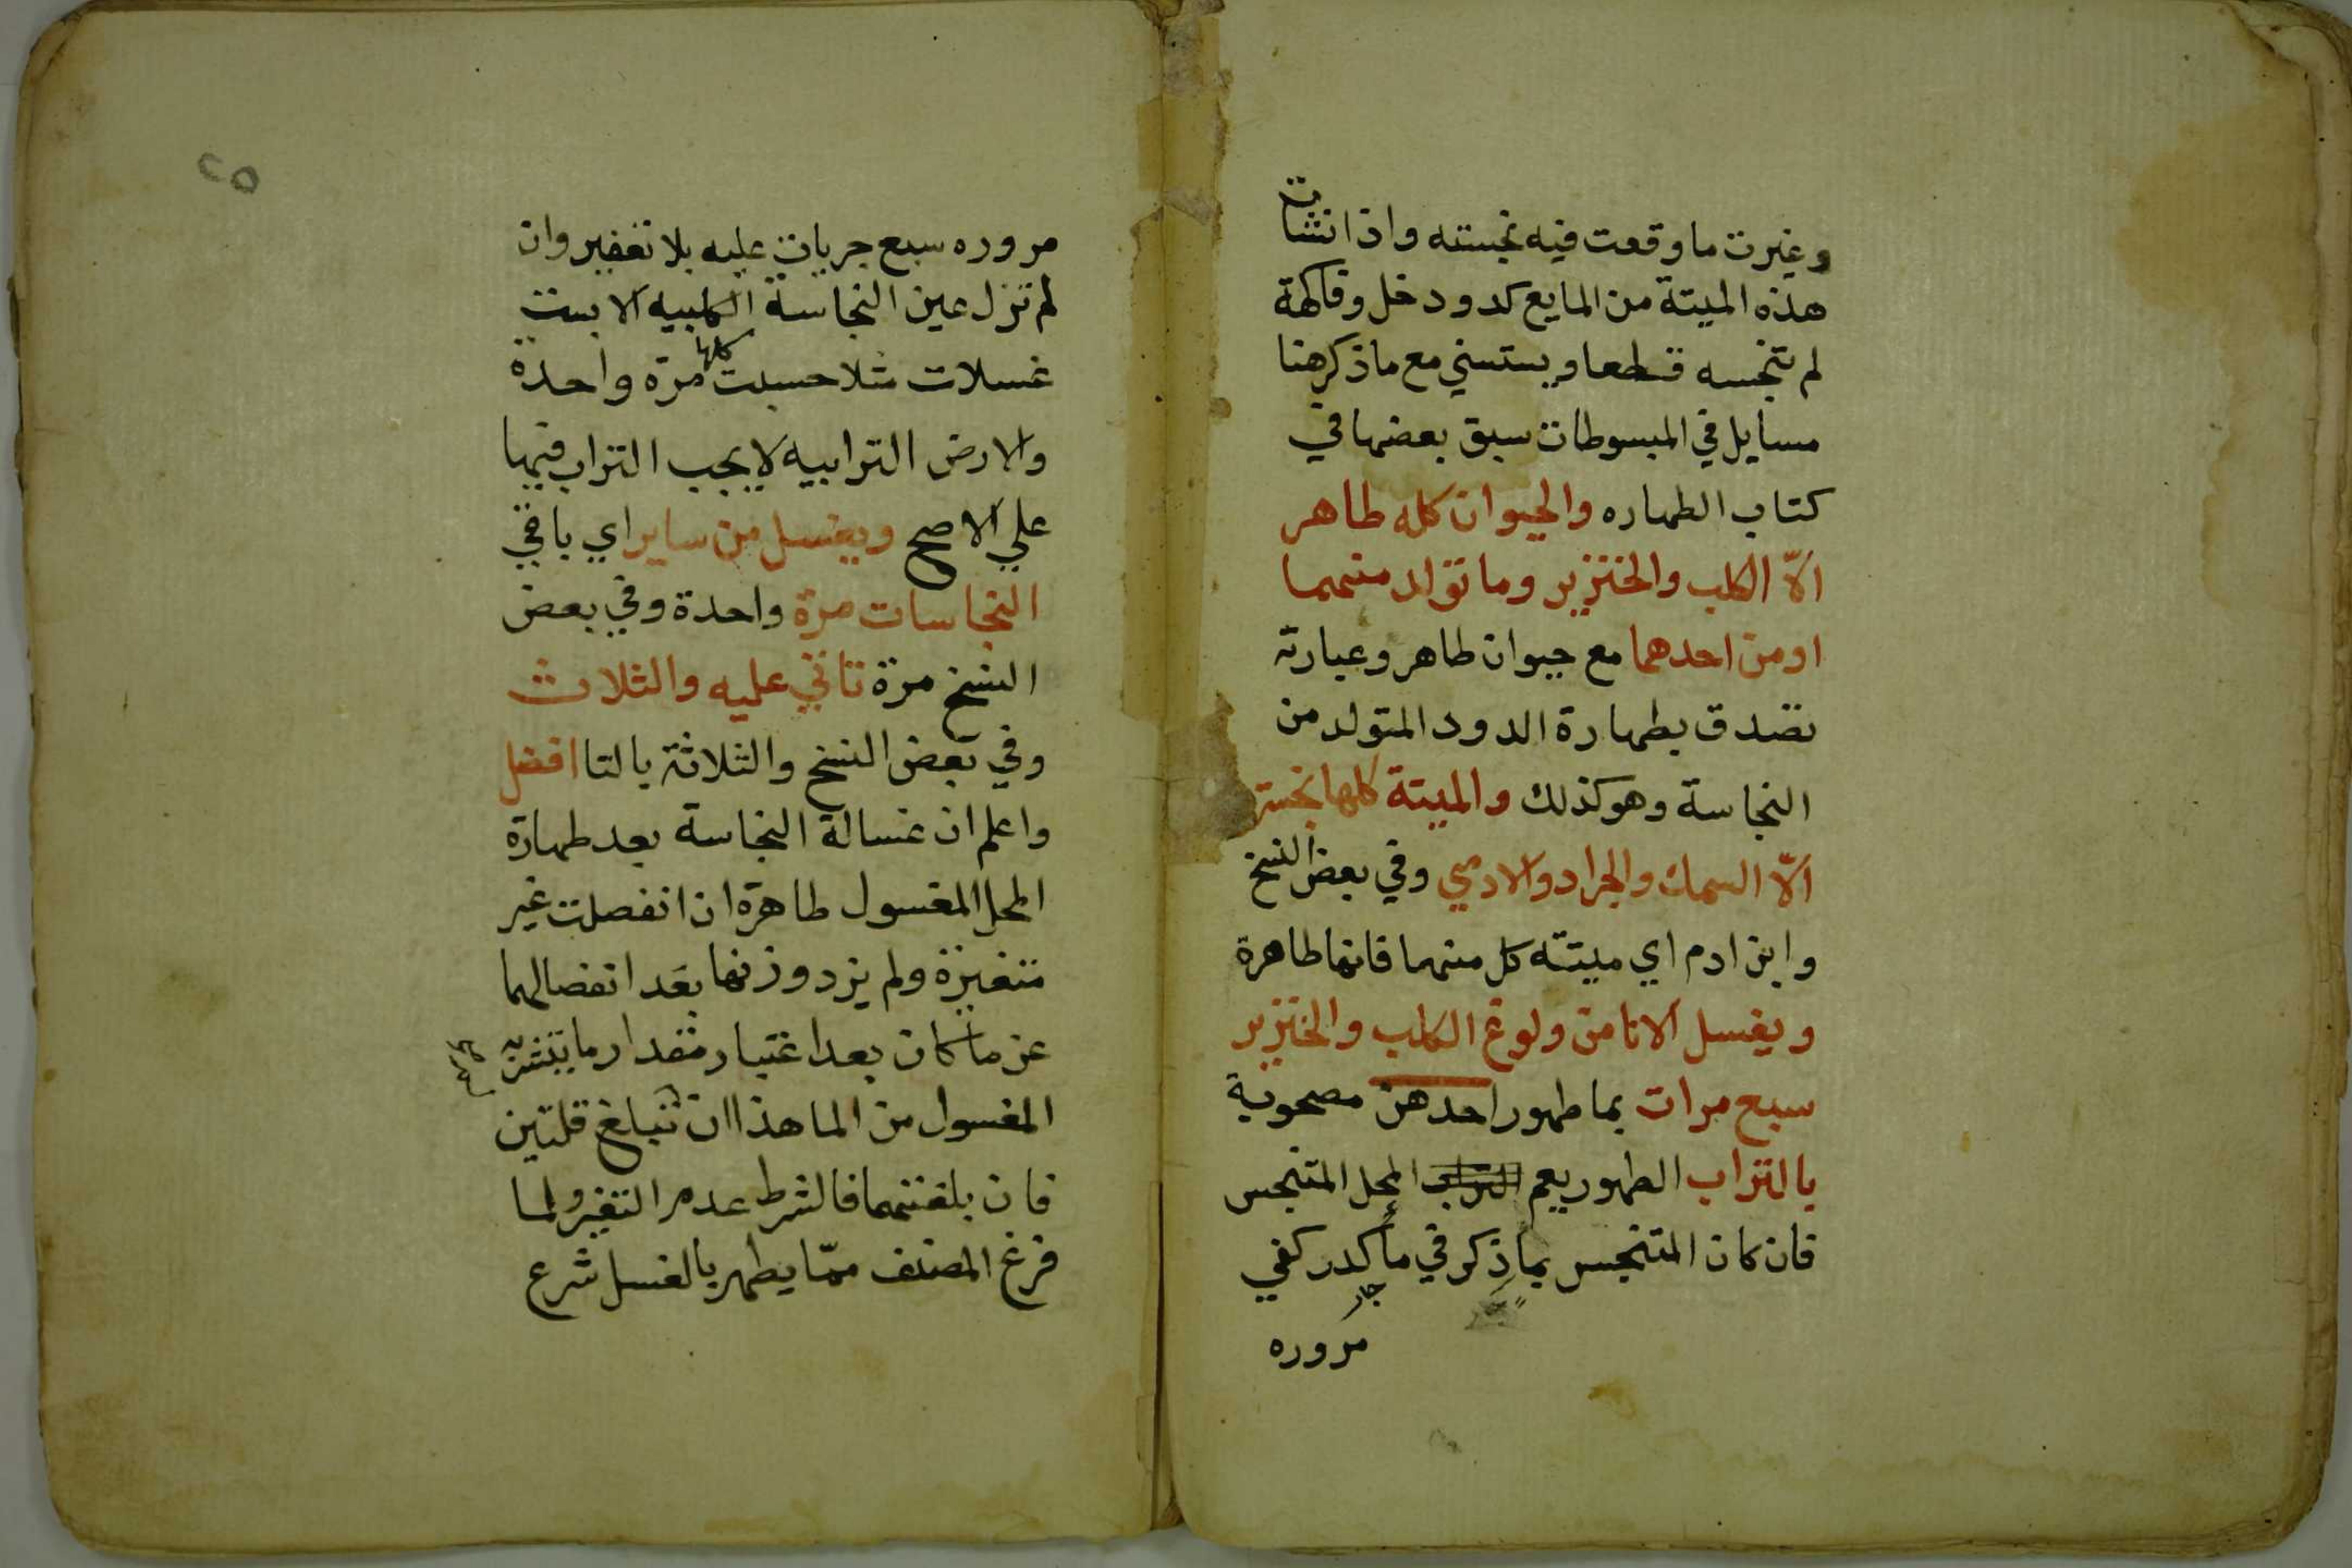 وغيرت ما وقعت فيه نجسته واذا نشات
هذه الميتة من المايع كدود خل وفاكهة
لم تنجسه قطعا ويستسني مع ما ذكر هنا
مسايل في المبسوطات سبق بعضها في
كتاب الطهاره والحيوان كله طاهر
الّا الكلب والخنزير وما تولد منهما
او من احدهما مع حيوان طاهر وعبارته
تصدق بطهارة الدود المتولد من
النجاسة وهو كذلك والميتة كلها نجسة
الّا السمك والجراد والادمي وفي بعض النسخ
وابن ادم اي ميتته كل منهما فانها طاهرة
ويغسل الانا من ولوغ الكلب والخنزير
سبع مرات بما طهور احدهن مصحوبة
بالتراب الطهور يعم المحل المتنجس
فان كان المتنجس بما ذكر في ما جار كدر كفي
مروره
٢٥
مروره سبع جريات عليه بلا تعفير وان
لم تزل عين النجاسة الكلبيه الا بست
غسلات مثلا حسبت كلها مرة واحدة
والارض الترابيه لا يجب التراب فيها
علي الاصح ويغسل من ساير اي باقي
النجاسات مرة واحدة وفي بعض
النسخ مرة تاتي عليه والثلاث
وفي بعض النسخ والثلاثة بالتا افضل
واعلم ان غسالة النجاسة بعد طهارة
المحل المغسول طاهرة ان انفصلت غير
متغيرة ولم يزد وزنها بعد انفصالها
عن ما كان بعد اعتبار مقدار ما يتشربه
المغسول من الما هذا ان لم تبلغ قلتين
فان بلغتهما فالشرط عدم التغير ولما
فرغ المصنف ممّا يطهر بالغسل شرع